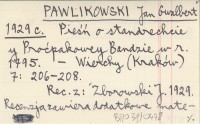 PAWLIKOWSKI Jan Gwalbert
1929 c. Pieśń o standrechcie
y Proćpakowej Bandzie w r.
1795. – Wierchy (Kraków)
7: 206-208.
Rec. z: Zborowski J. 1929.
Recenzja zawiera dodatkowe mate-